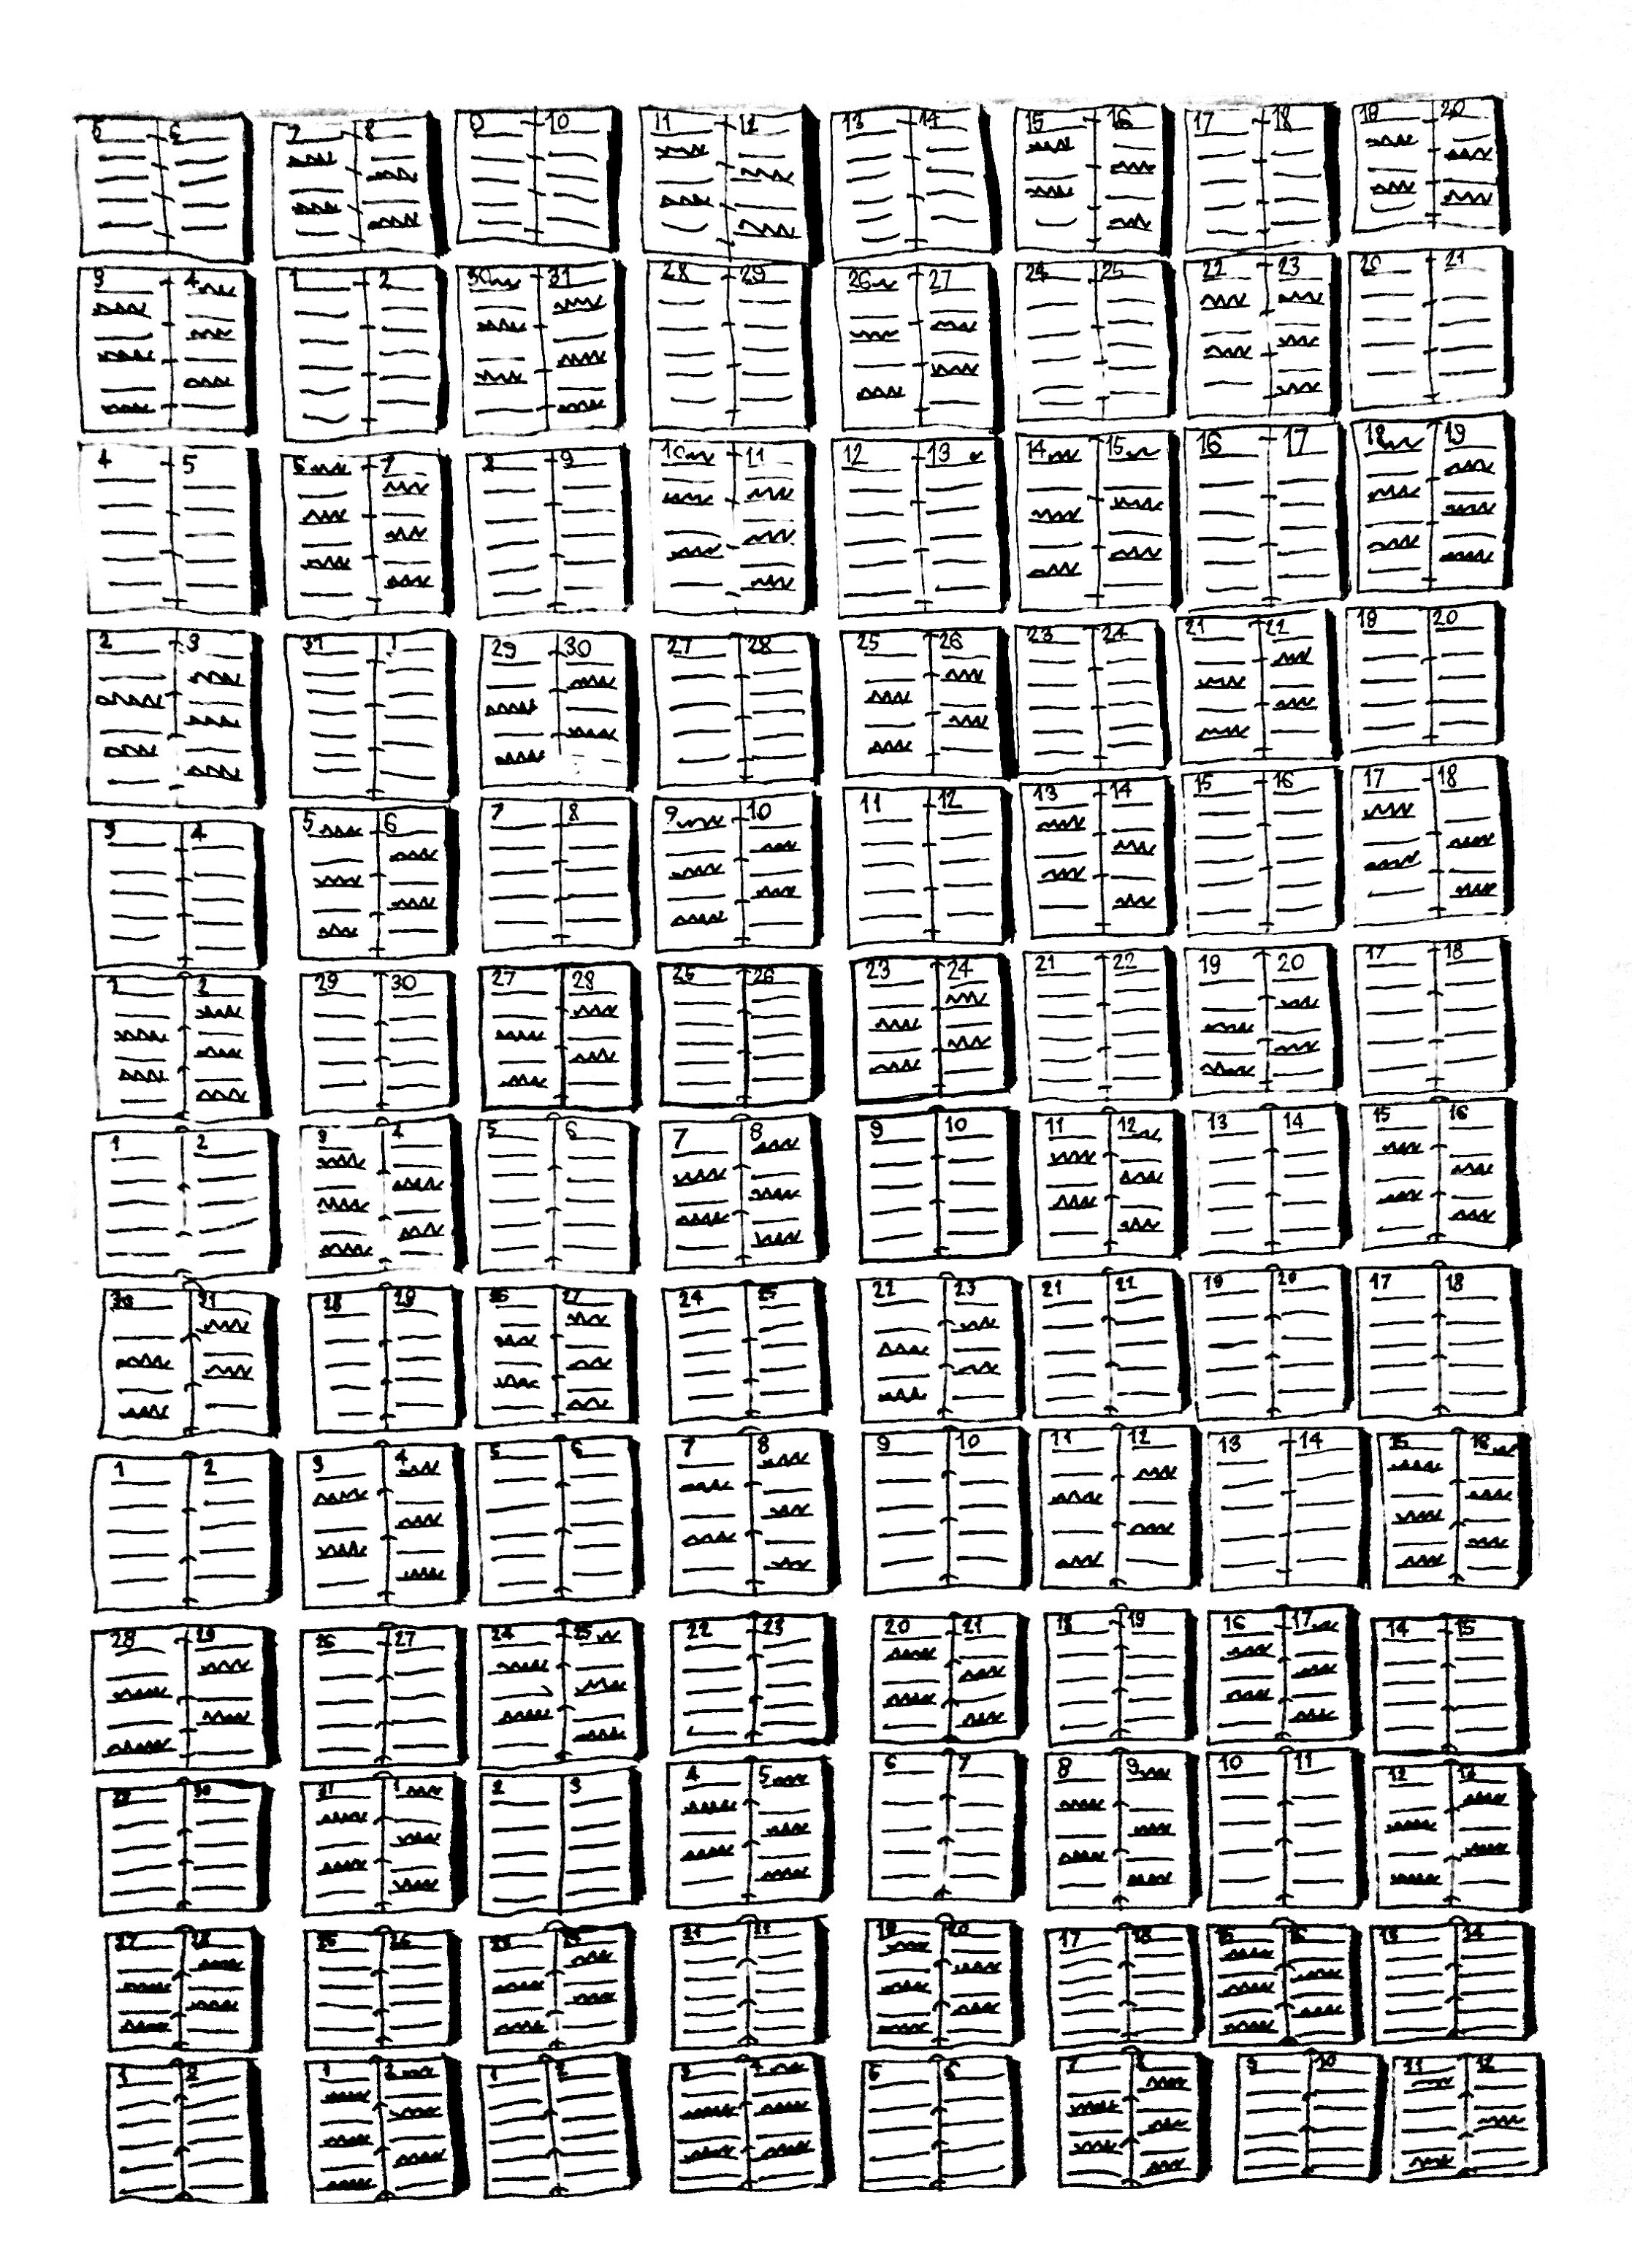 5 6 7 8 9 10 11 12 13 14 15 16 17 18 19 20
3 4 1 2 30 31 28 29 26 27 24 25 22 23 20 21
4 5 6 7 8 9 10 11 12 13 14 15 16 17 18 19
2 3 31 1 29 30 27 28 25 26 23 24 21 22 19 20
3 4 5 6 7 8 9 10 11 12 13 14 15 16 17 18
1 2 29 30 27 28 25 26 23 24 21 22 19 20 17 18
1 2 3 4 5 6 7 8 9 10 11 12 13 14 15 16
30 31 28 29 26 27 24 25 22 23 21 22 19 20 17 18
1 2 3 4 5 6 7 8 9 10 11 12 13 14 15 16
28 29 26 27 24 25 22 23 20 21 18 19 16 17 14 15
29 30 31 1 2 3 4 5 6 7 8 9 10 11 12 13
27 28 25 26 23 19 20 17 18 15 16 13 14
1 2 1 2 1 2 3 4 5 6 7 8 9 10 11 12